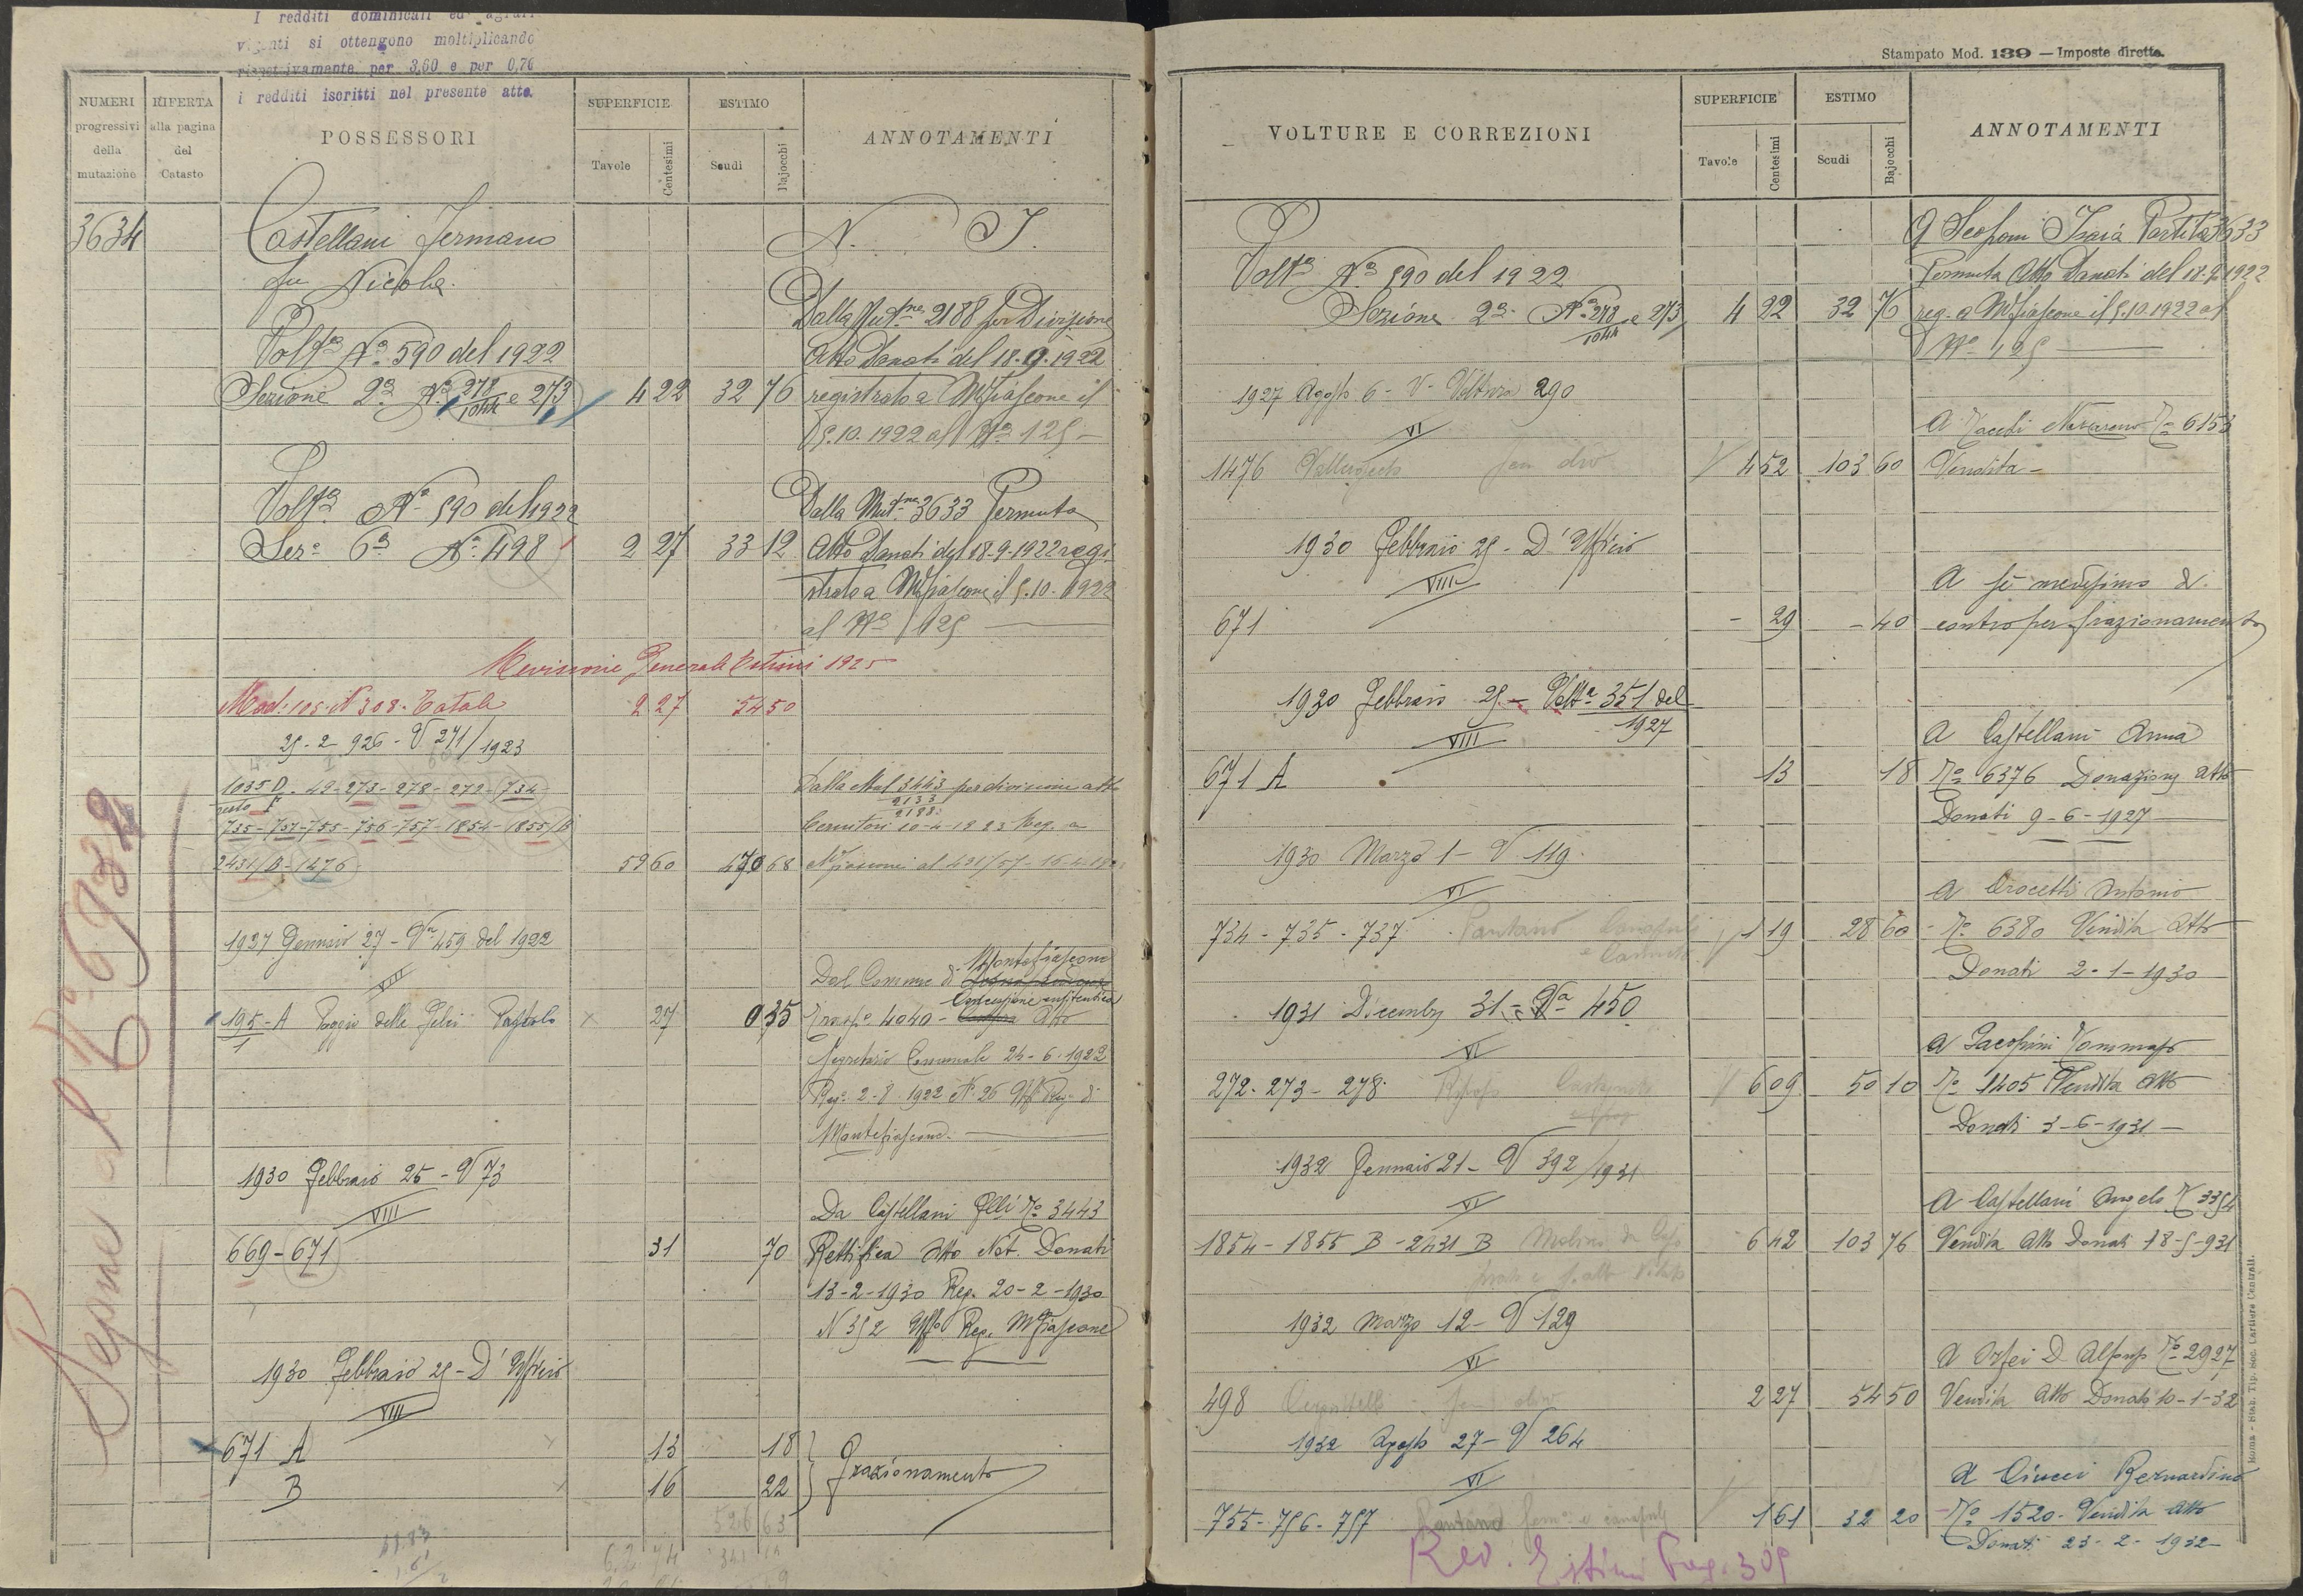 I redditi dominicali ed agrari
vigenti si ottengono moltiplicando
rispettivamente per 3,60 e per 0,70
i redditi iscritti nel presente atto.
NUMERI progressivi della mutazione
RIFERTA alla pagina del Catasto
POSSESSORI
SUPERFICIE
Tavole Centesimi
ESTIMO
Scudi Bajocchi
ANNOTAMENTI
3634 Castellani Germano N. I.
fu Nicola.
Dalla Mut.ne 2188 per Divisione
Volt.a N.o 590 del 1922 Atto Donati del 18.9.1922
Sezione 2a N.o 278/10tth e 273 4 22 32 76 registrato a Mfiascone il
5.10.1922 al No 125 —
Volt.a No 590 del 1922 Dalla Mut.ne 3633 Permuta
Sez.e 6a No. 498 2 27 33 12 Atto Donati del 18-9-1922 regi
strato a Mfiascone il 5.10.1922
al No 125 —
Revisione Generale Estimi 1925
Mod. 105. N 308. Totale 2 27 54 50
25-2-926 - V 271/1923
1035 D - 49-273-278-272-734 Dalla Mut 3443 per divisione atto
resto I 2133
2188
735-737-755-756-757-1854-1855/B 10-4-1923 Reg. a
2431/B-1476 59 60 470 68 Mfiascone al 421/57-16-4-
1927 Gennaio 27 - Va 459 del 1922
VIII
Dal Comune di Montefiascone
Concessione enfiteutica
195-A/1 Poggio delle Pascolo 27 0 35 4040 - Atto
Segretario Comunale 24-6-1922
Reg. 2-8-1922 N. 26 Uff Reg. di
Montefiascone. —
1930 Febbraio 25 - V 73
VIII
Da Castellani Flli No 3443
669-671 31 70 Rettifica Atto Not. Donati
13-2-1930 Reg. 20-2-1930
N 352 Uff Reg. Mfiascone
1930 Febbraio 25 - D'Ufficio
VIII
671 A 13 18
B 16 22 Frazionamento
526 63
62 74
Segue al No 6932
Stampato Mod. 139 — Imposte dirette.
VOLTURE E CORREZIONI
SUPERFICIE
Tavole Centesimi
ESTIMO
Scudi Bajocchi
ANNOTAMENTI
A Isaia Partita 3633
Volt.a No 590 del 1922 Permuta Atto Donati del 18.9.1922
Sezione 2a No 278/10tth e 273 4 22 32 76 reg. a Mfiascone il 5.10.1922 al
No 125 —
1927 Agosto 6 - V - Voltura 290
VI
A Nazareno No 6153
1476 4 52 103 60 Vendita —
1930 Febbraio 25 - D'Ufficio
VIII
A se medesimo di
671 - 29 - 40 contro per frazionamento
1930 Febbraio 25 - Volt.a 351 del 1927
VIII
A Castellani Anna
671 A 13 18 No 6376 Donazione Atto
Donati 9-6-1927 —
1930 Marzo 1 - V 119.
VI
A Crocetti Antonio
734-735-737. Pantano 1 19 28 60 No 6380 Vendita Atto
Donati 2-1-1930
1931 Dicembre 31 - Va 450
VI
A Jacopini Tommaso
272-273-278. 6 09 50 10 No 1405 Vendita Atto
Donati 3-6-1931 —
1932 Gennaio 21 - V 392/1931
VI
A Castellani Angelo No 3354
1854-1855 B-2431 B 6 42 103 76 Vendita Atto Donati 18-5-931
1932 Marzo 12 - V 129
VI
A Orfei D Alfonso No 2927
498 2 27 54 50 Vendita Atto Donati 10-1-32
1932 Agosto 27 - V 264
VI
A Ciucci Bernardino
755-756-757 Pantano 1 61 32 20 No 1520 - Vendita Atto
Donati 23-2-1932
Rev. Estimi Pag. 309
Roma - Stab. Tip. Soc. Cartiere Centrali.